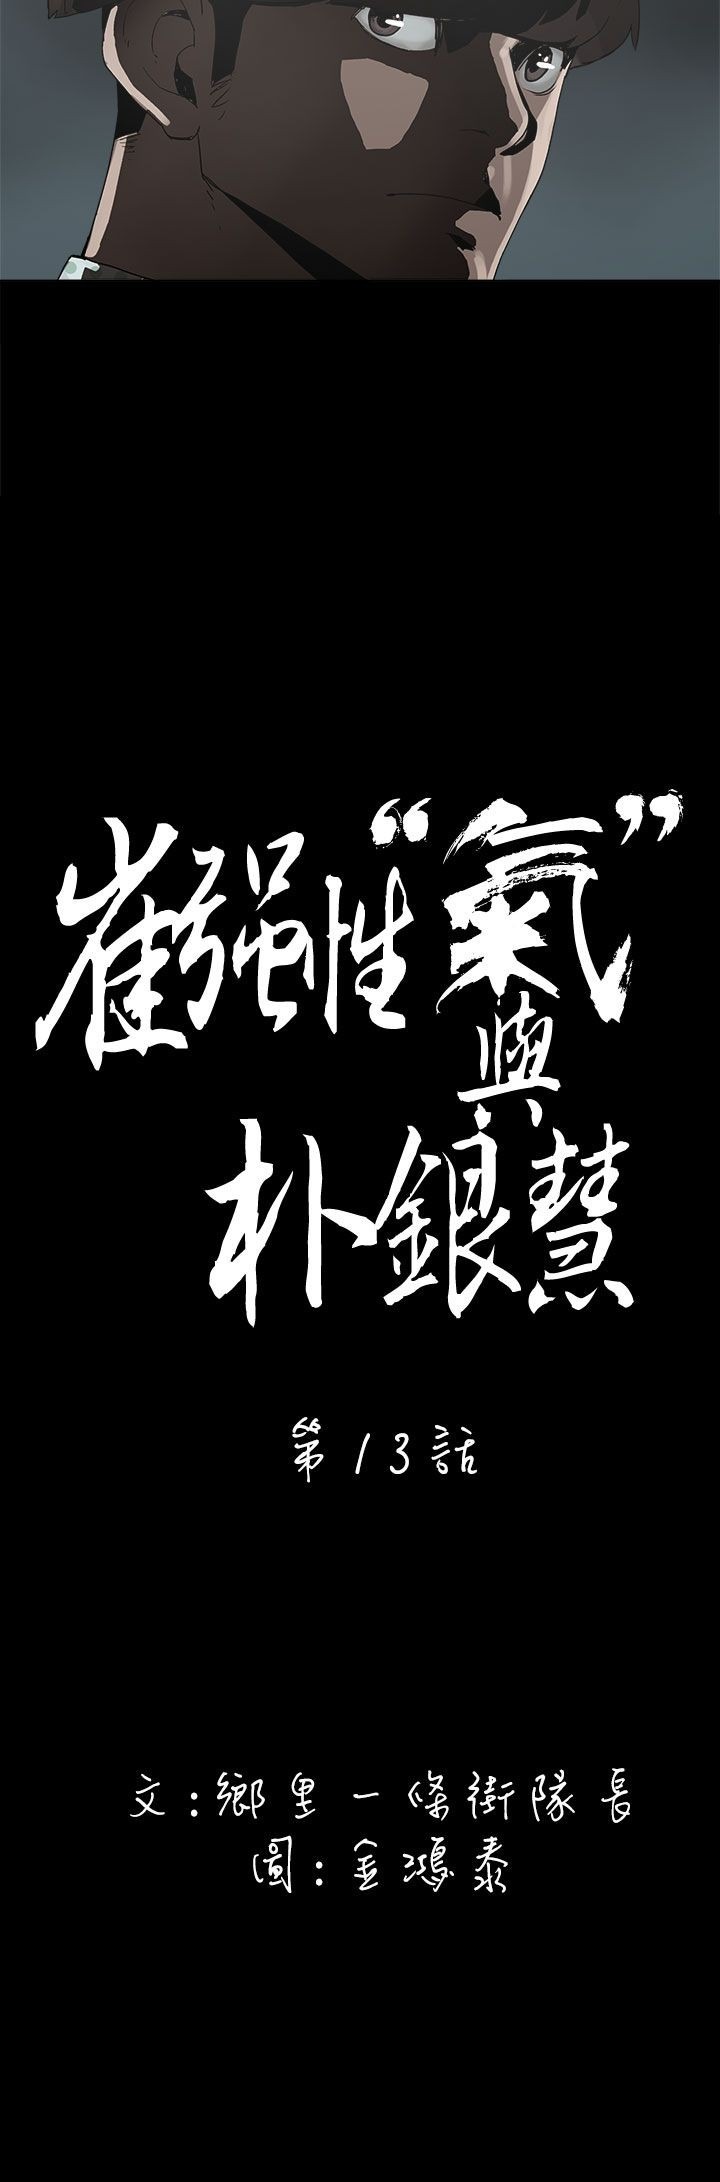 崔强性“氣”
與
朴銀慧
第13話
文:鄉里一條街隊長
圖:金鴻泰